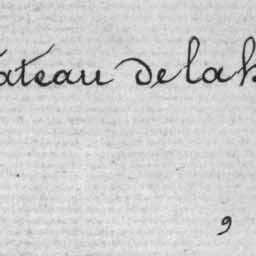 ateau de la
9